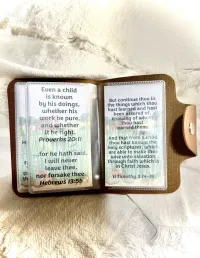 Even a child
is known
by his doings,
whether his
work be pure,
and whether
it be right.
Proverbs 20:11
...for he hath said,
I will never
leave thee,
nor forsake thee.
Hebrews 13:5b
But continue thou in
the things which thou
hast learned and hast
been assured of,
knowing of whom
thou hast
learned them;
And that from a child
thou hast known the
holy scriptures, which
are able to make thee
wise unto salvation
through faith which is
in Christ Jesus.
II Timothy 3:14-15